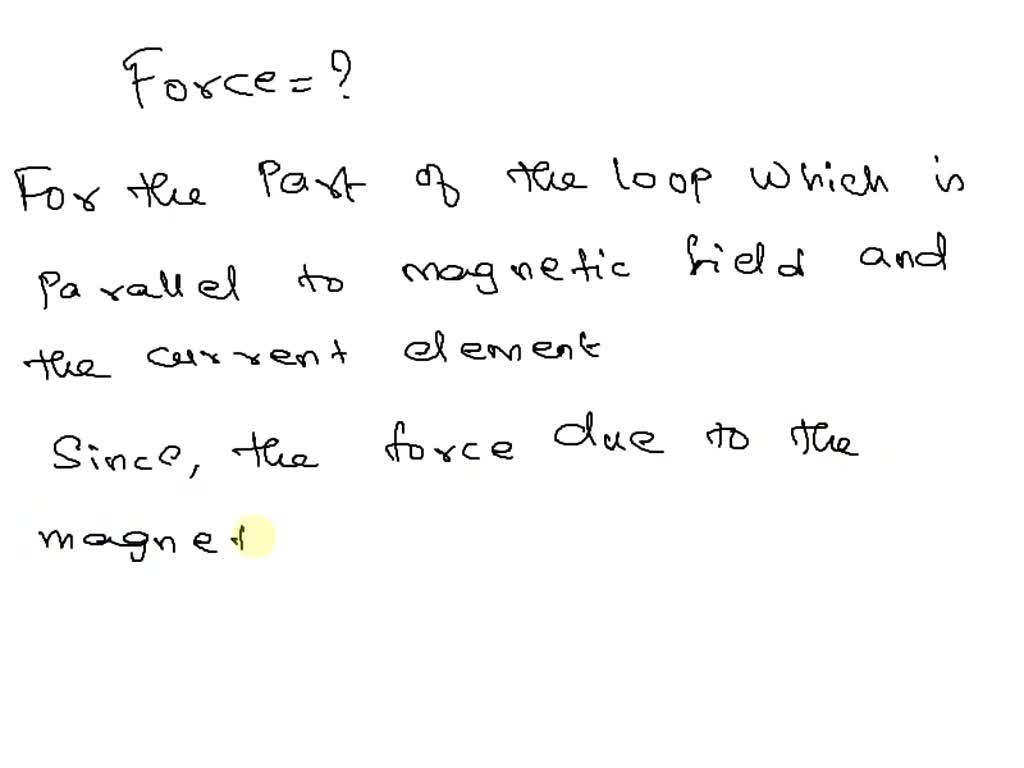 Force=?
For the Part of the loop which is
Parallel to magnetic field and
the current element
Since, the force due to the
magnet